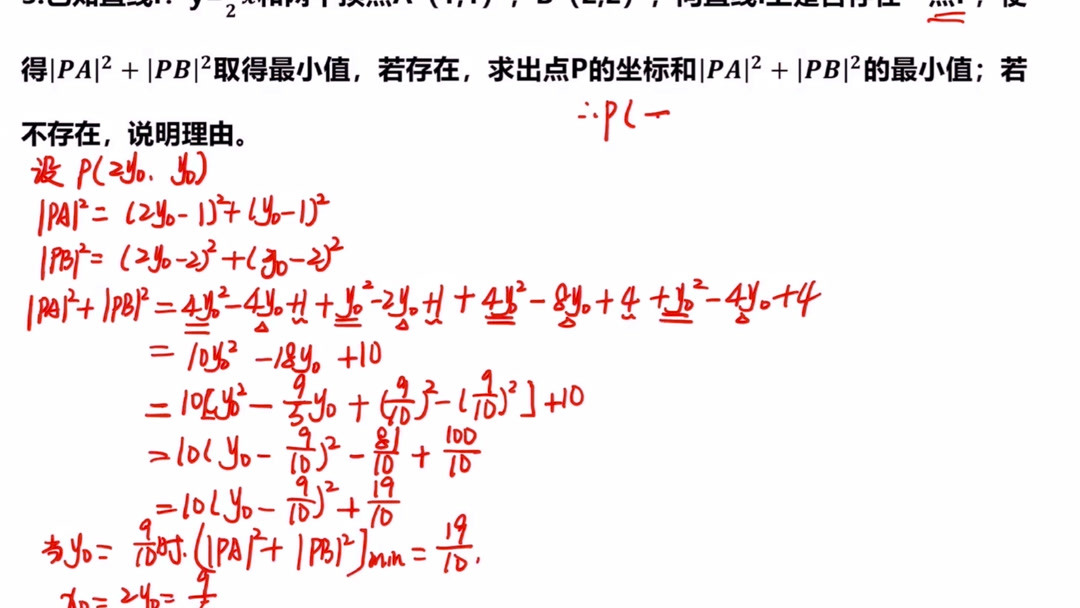 得|PA|²+|PB|²取得最小值，若存在，求出点P的坐标和|PA|²+|PB|²的最小值；若
不存在，说明理由。
∴P(
设 P(2y₀, y₀)
|PA|²= (2y₀-1)²+(y₀-1)²
|PB|²= (2y₀-2)²+(y₀-2)²
|PA|²+|PB|²=4y₀²-4y₀+1+y₀²-2y₀+1+4y₀²-8y₀+4+y₀²-4y₀+4
=10y₀²-18y₀+10
=10[y₀²-9/5y₀+(9/10)²-(9/10)²]+10
=10(y₀-9/10)²-81/10+100/10
=10(y₀-9/10)²+19/10
当y₀=9/10时.(|PA|²+|PB|²)min=19/10.
x₀=2y₀=9